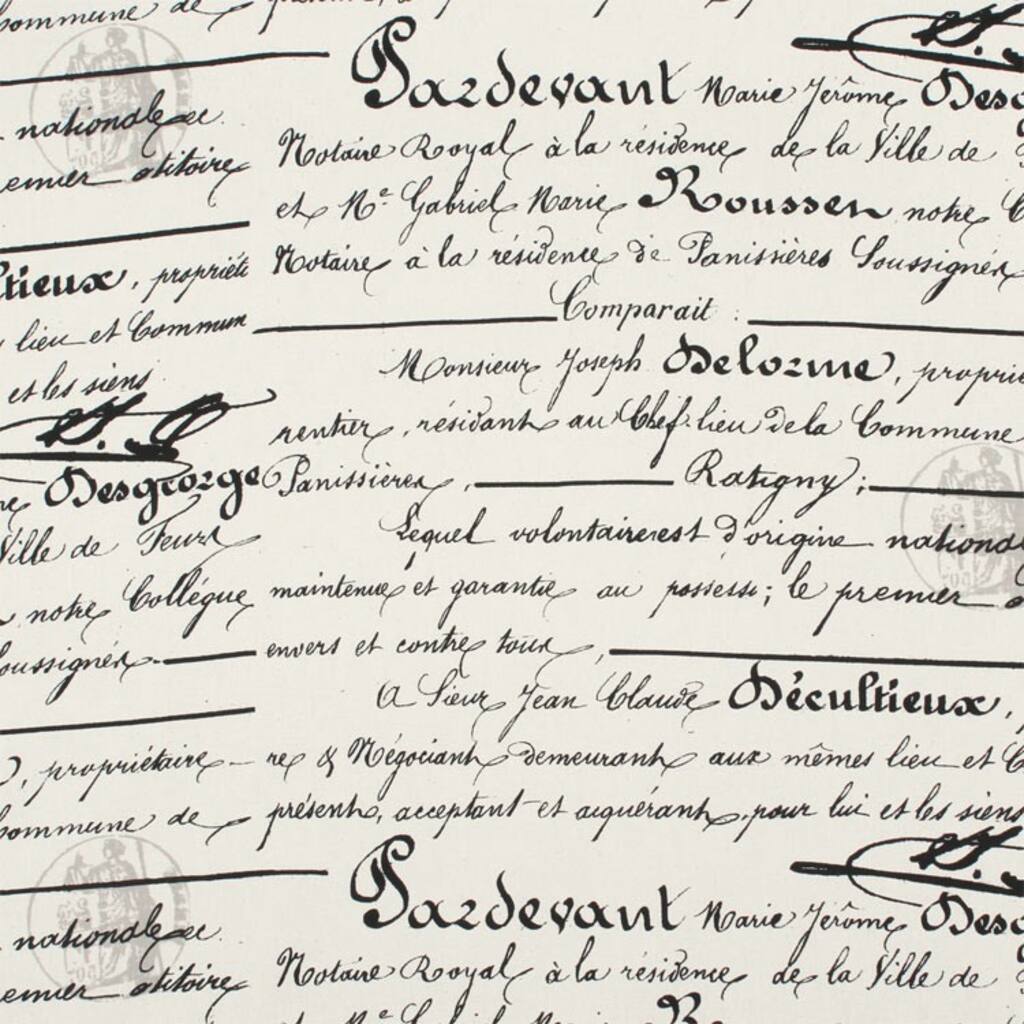 Commune de
nationale et
premier
Pardevant Marie Jérôme Desg
Notaire Royal à la résidence de la Ville de
et Me. Gabriel Marie Roussen notre C
Notaire à la résidence de Panissières Soussignés
Comparait :
Monsieur Joseph Delorme, proprié
rentier, résidant au Chef-lieu de la Commune
Panissières, Ratigny ;
Lequel volontaire est d'origine nationa
maintenue et garantie au possess ; le premier
envers et contre tous,
A Sieur Jean Claude Décultieux,
re & Négociant demeurant aux mêmes lieu et C
présent, acceptant et acquérant, pour lui et les siens
tieux, propriété
lieu et Commun
et les siens
Desgeorge
Ville de Feurs
notre Collégue
Soussignés
, propriétaire
Commune de
nationale et
premier
Pardevant Marie Jérôme Desg
Notaire Royal à la résidence de la Ville de